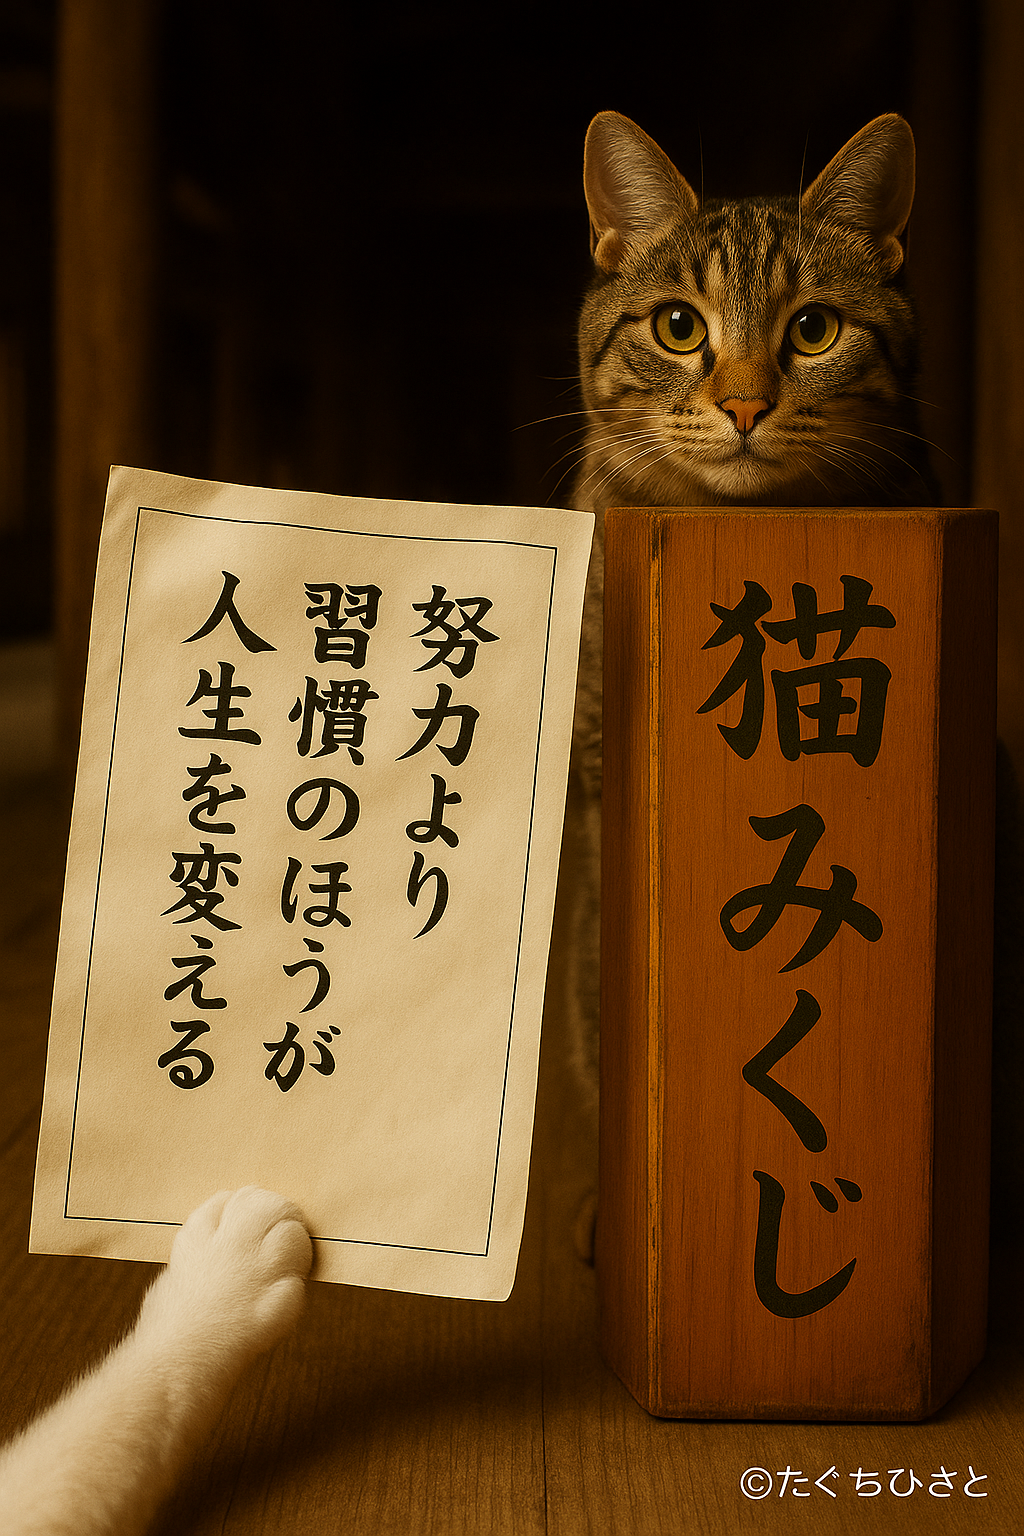 努力より
習慣のほうが
人生を変える
猫みくじ
©たぐちひさと